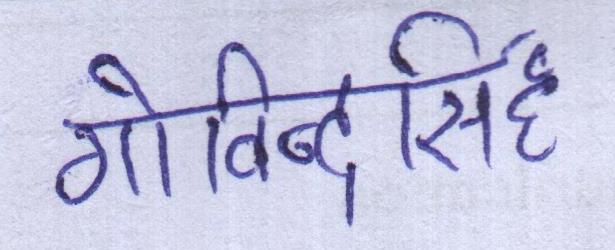 गोविन्द सिंह